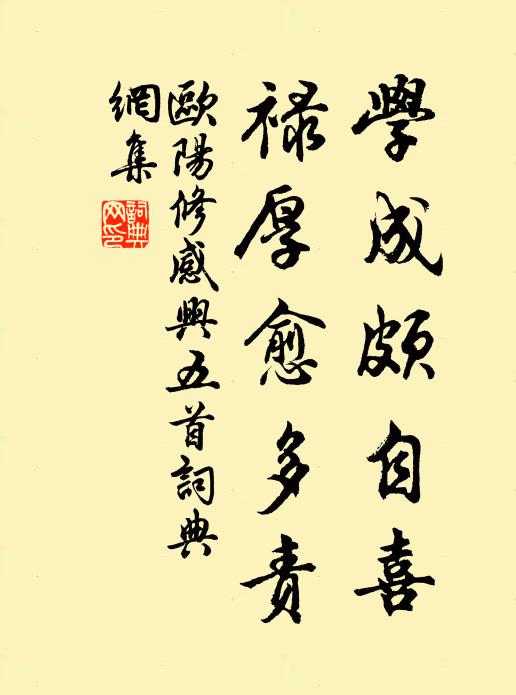 學成頗自喜
祿厚愈多責
歐陽修感興五首詞典
網集
詞典
网印